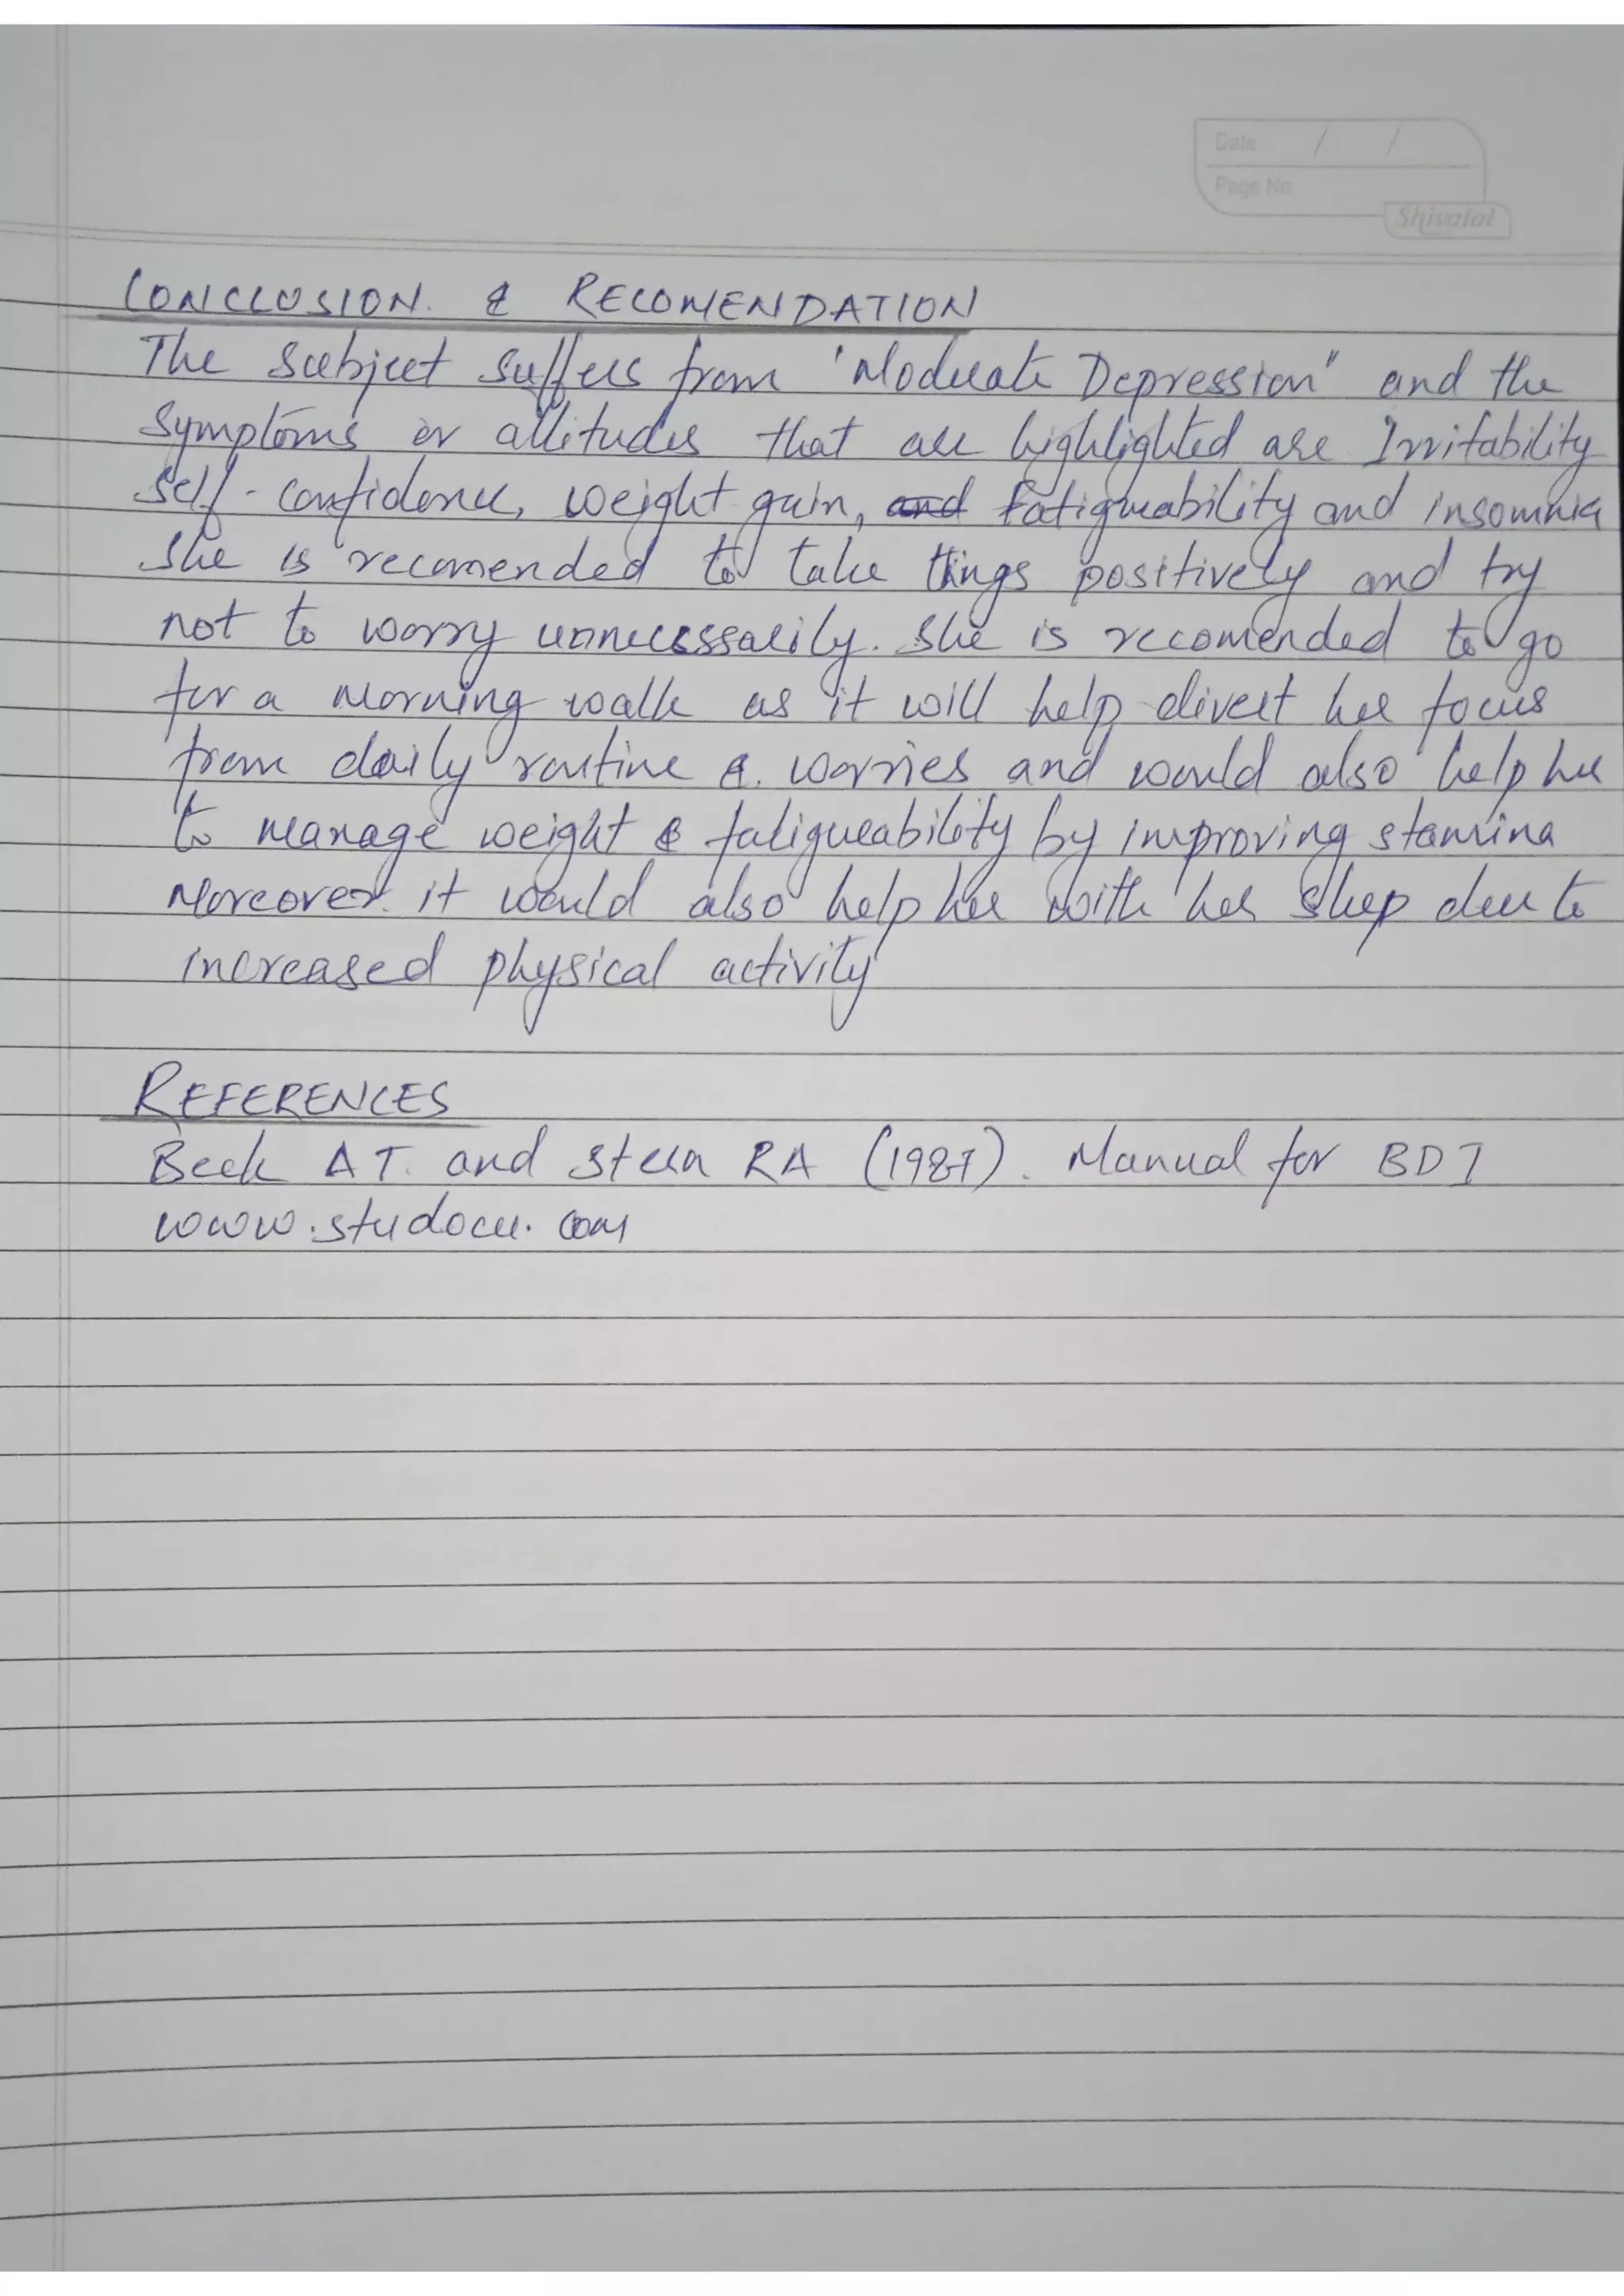 Date / /
Page No
Shivalal
CONCLUSION. & RECOMENDATION
The Subject suffers from 'Moderate Depression" and the
Symptoms or attitudes that are highlighted are Irritability
Self-confidence, weight gain, and fatigueability and insomnia
She is recomended to take things positively and try
not to worry unnecessarily. She is recomended to go
for a morning walk as it will help divert her focus
from daily routine & worries and would also help her
to manage weight & fatigueability by improving stamina
Moreover it would also help her with her sleep due to
increased physical activity
REFERENCES
Beck A T. and Steer RA (1987). Manual for BDI
www.studocu.com